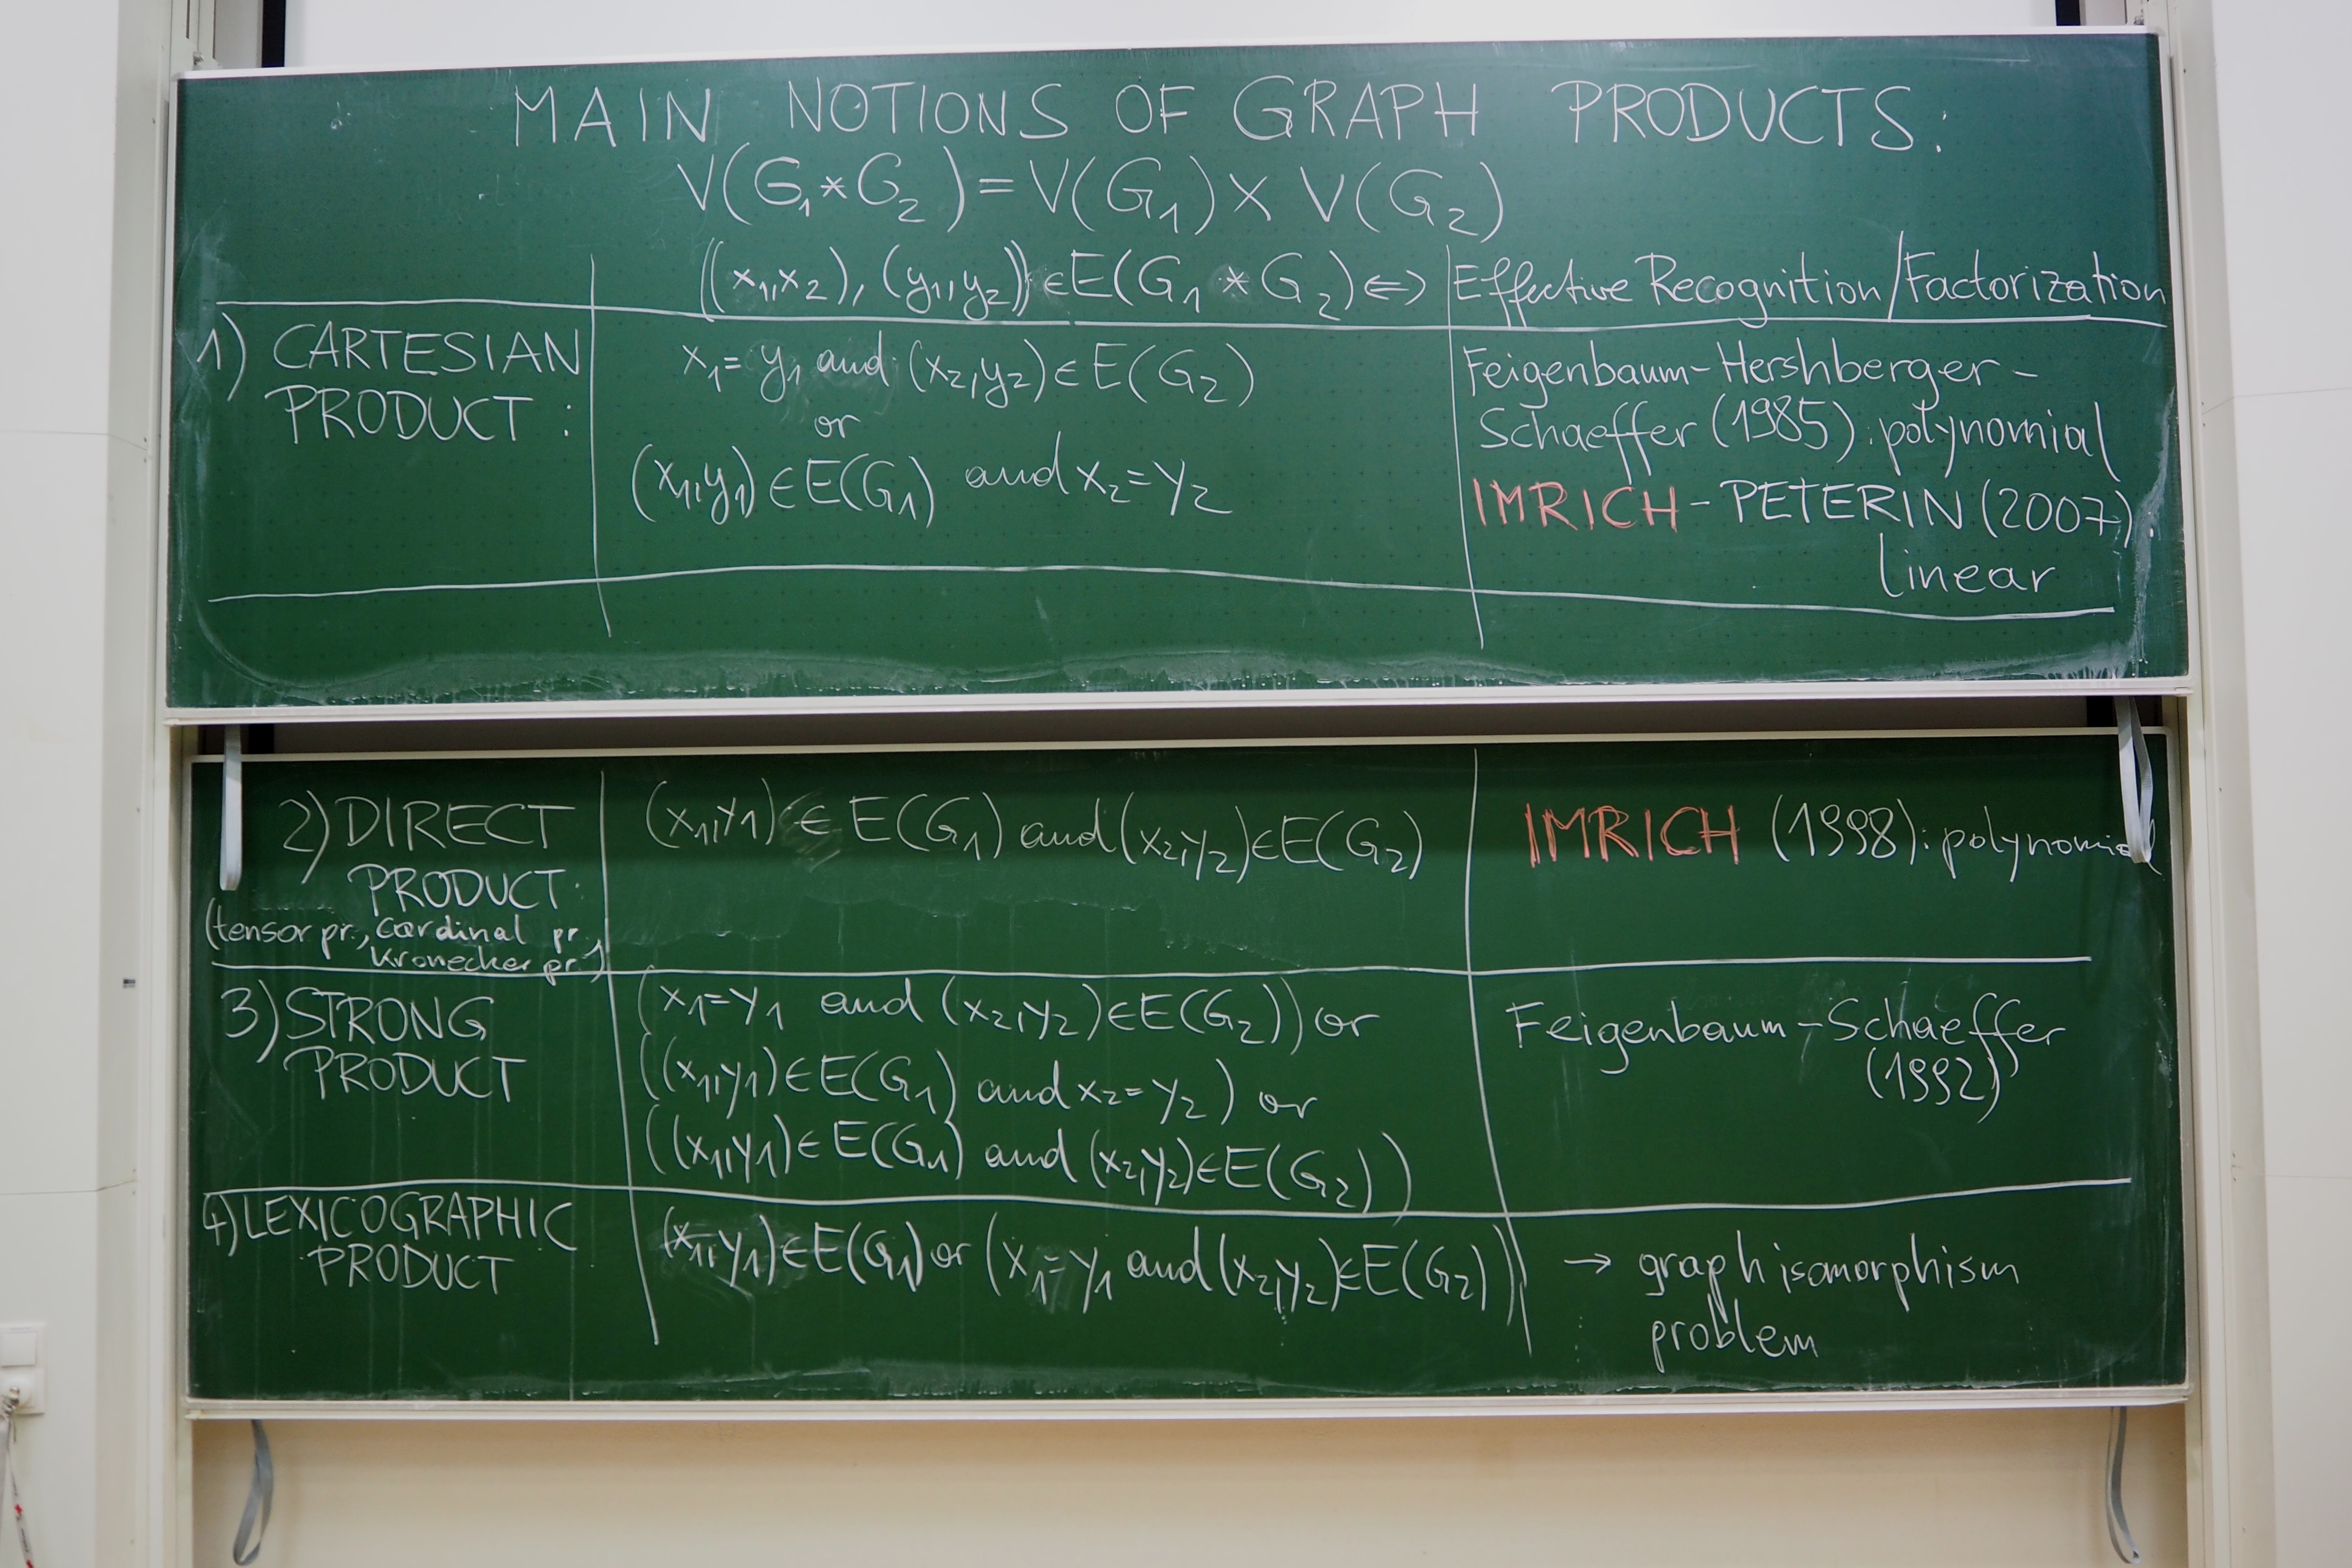 MAIN NOTIONS OF GRAPH PRODUCTS:
V(G₁*G₂)=V(G₁)×V(G₂)
((x₁,x₂),(y₁,y₂))∈E(G₁*G₂)⇔
Effective Recognition/Factorization
1) CARTESIAN
PRODUCT:
x₁=y₁ and (x₂,y₂)∈E(G₂)
or
(x₁,y₁)∈E(G₁) and x₂=y₂
Feigenbaum-Hershberger-
Schaeffer (1985): polynomial
IMRICH-PETERIN (2007):
linear
2) DIRECT
PRODUCT:
(tensor pr., cardinal pr.,
Kronecker pr.)
(x₁,y₁)∈E(G₁) and (x₂,y₂)∈E(G₂)
IMRICH (1998): polynomial
3) STRONG
PRODUCT
(x₁=y₁ and (x₂,y₂)∈E(G₂)) or
((x₁,y₁)∈E(G₁) and x₂=y₂) or
((x₁,y₁)∈E(G₁) and (x₂,y₂)∈E(G₂))
Feigenbaum-Schaeffer
(1992)
4) LEXICOGRAPHIC
PRODUCT
(x₁,y₁)∈E(G₁) or (x₁=y₁ and (x₂,y₂)∈E(G₂))
→ graph isomorphism
problem